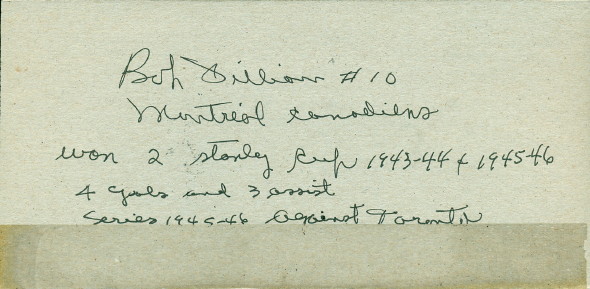 Bob Fillion #10
Montréal canadiens
won 2 stanley Cup 1943-44 & 1945-46
4 goals and 3 assist
Series 1945-46 Against Toronto